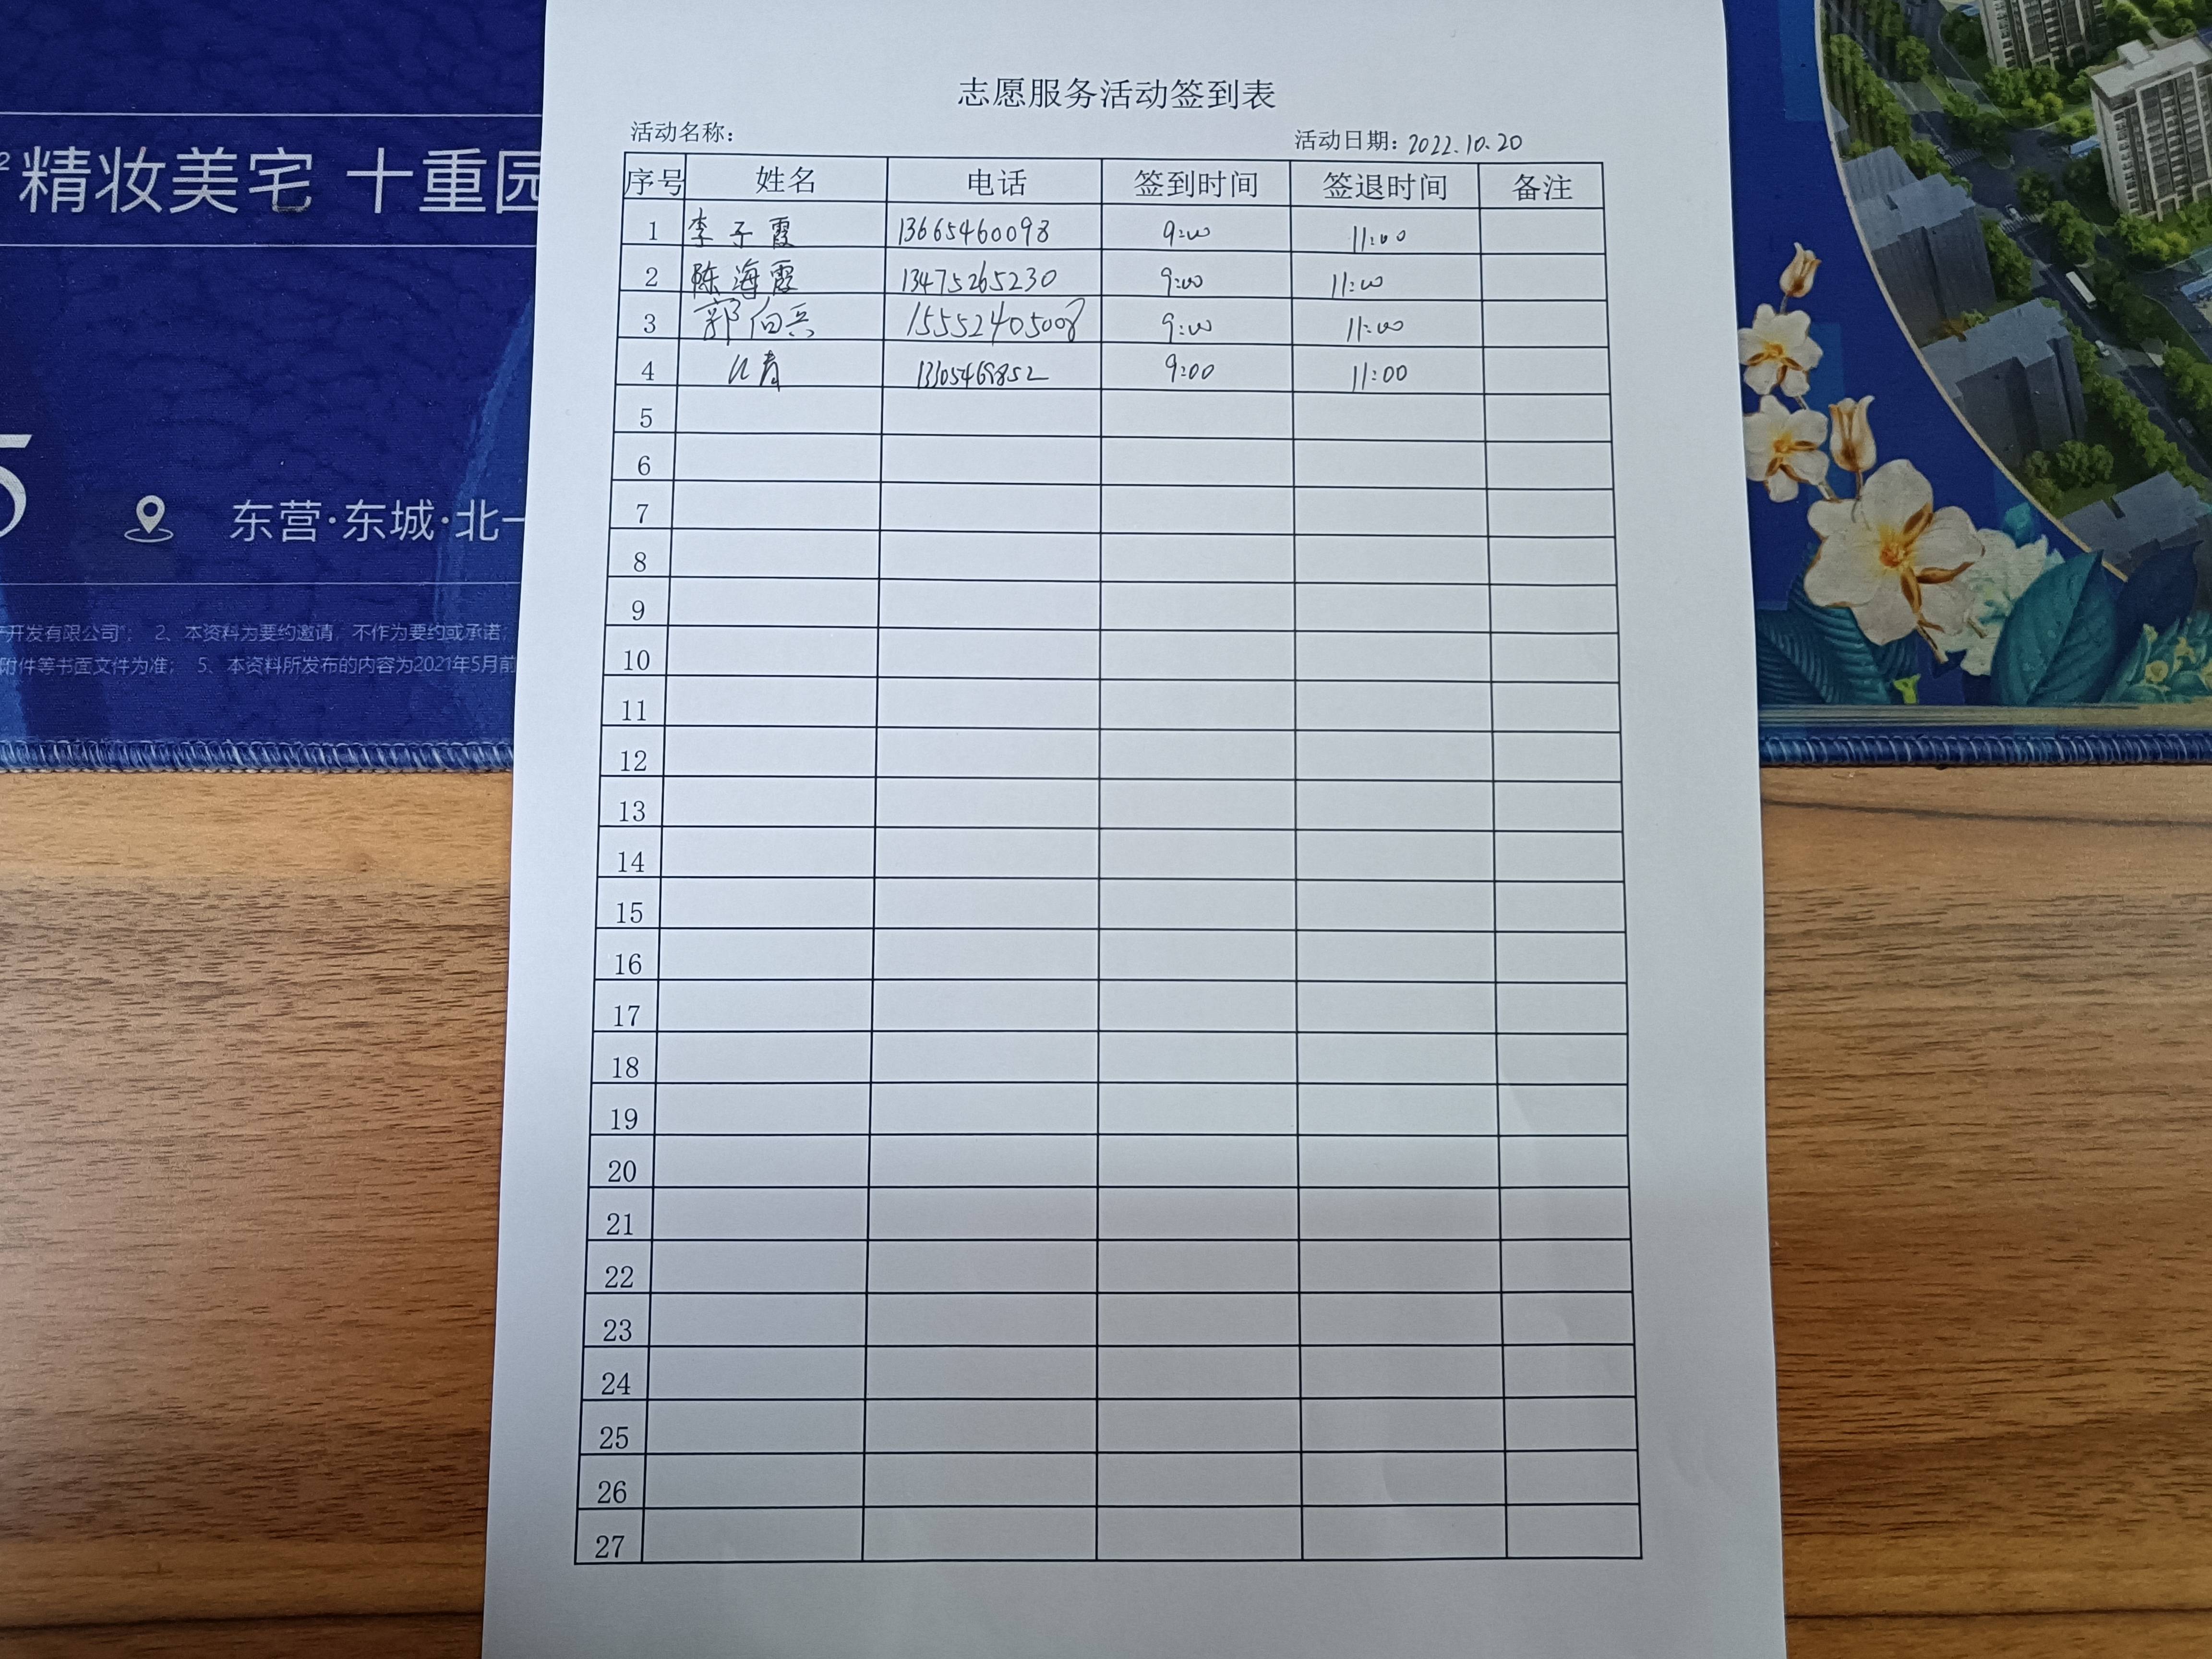 志愿服务活动签到表
活动名称：
活动日期：2022.10.20
序号 姓名 电话 签到时间 签退时间 备注
1 李子霞 13665460098 9:00 11:00
2 陈海霞 13475265230 9:00 11:00
3 郭伯兵 15552405008 9:00 11:00
4 9:00 11:00
5
6
7
8
9
10
11
12
13
14
15
16
17
18
19
20
21
22
23
24
25
26
27
精妆美宅 十重园
5
东营·东城·北一
开发有限公司"； 2、本资料为要约邀请，不作为要约或承诺；
附件等书面文件为准； 5、本资料所发布的内容为2021年5月前